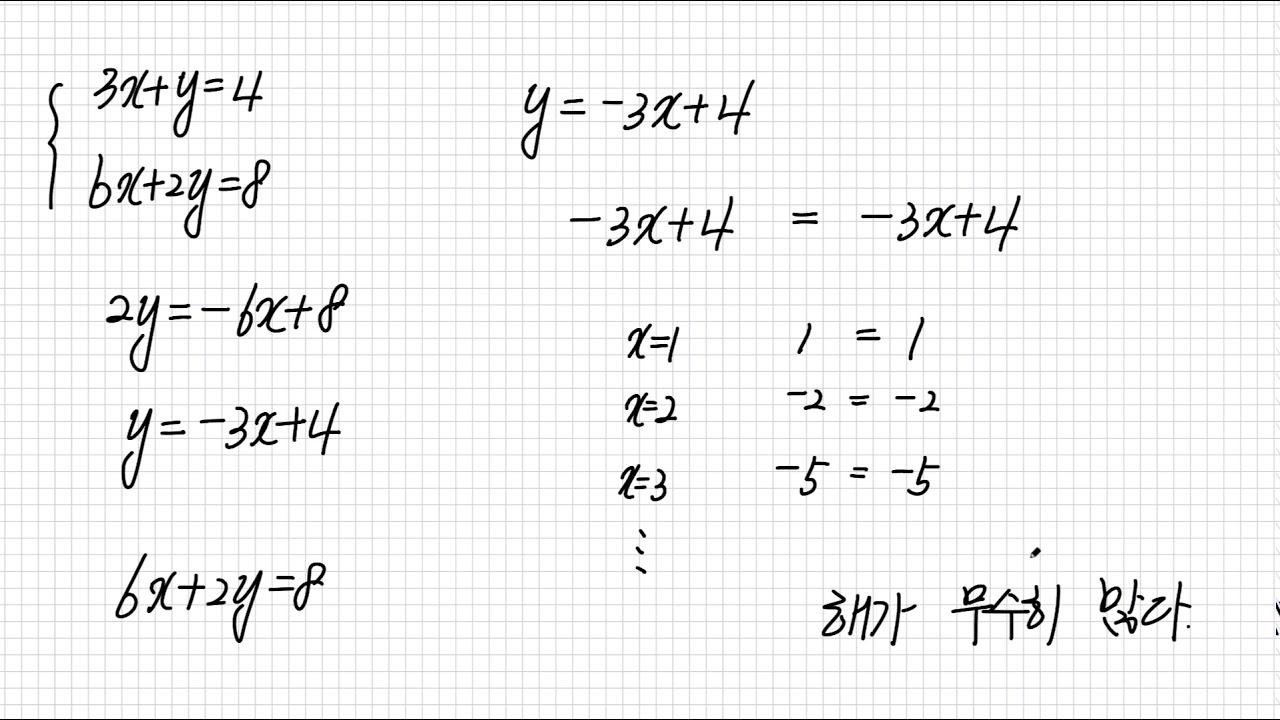 3x+y=4
6x+2y=8
2y=-6x+8
y=-3x+4
6x+2y=8
y=-3x+4
-3x+4 = -3x+4
x=1 1 = 1
x=2 -2 = -2
x=3 -5 = -5
⋮
해가 무수히 많다.